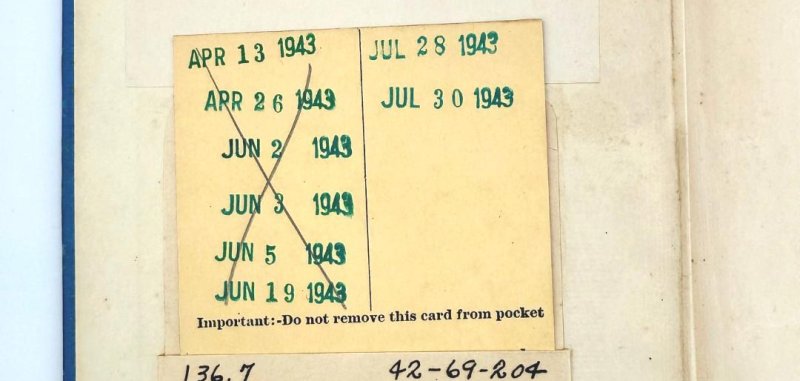 APR 13 1943
APR 26 1943
JUN 2 1943
JUN 3 1943
JUN 5 1943
JUN 19 1943
JUL 28 1943
JUL 30 1943
Important:-Do not remove this card from pocket
136.7
42-69-204